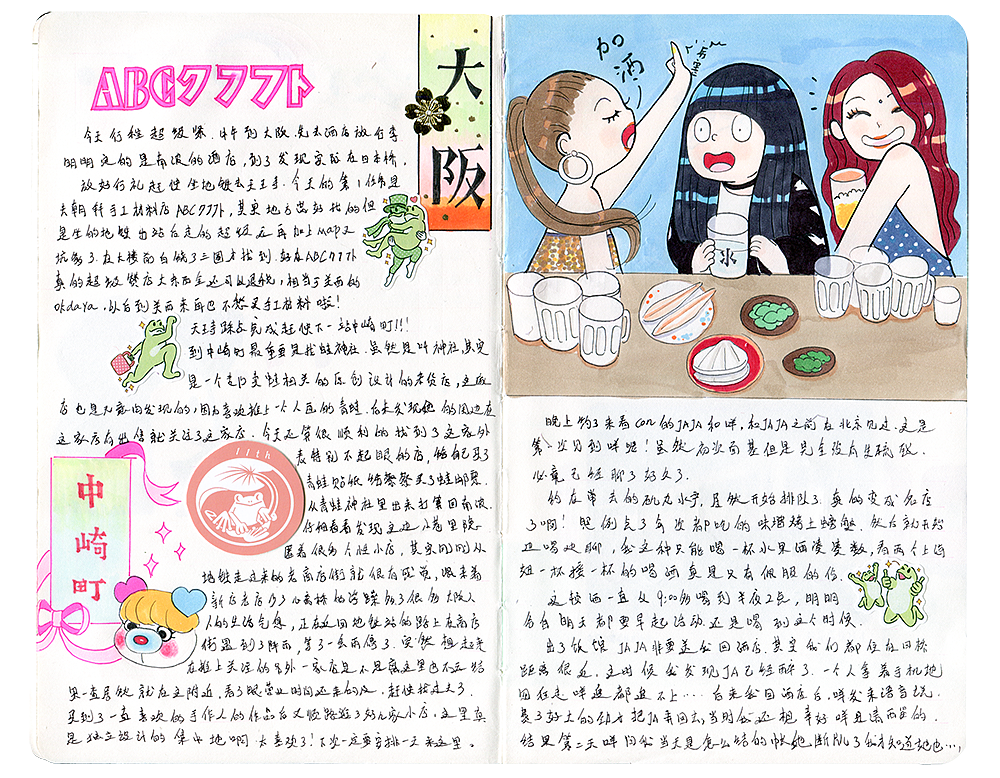 ABCクラフト
大
阪
今天行程超级紧.中午到大阪.先去酒店放行李
明明定的是难波的酒店,到了发现实际在日本桥.
放好行礼赶快坐地铁去天王寺.今天的第1任务是
去朝拜手工材料店ABCクラフト,其实地方蛮好找的但
是坐的地铁出站后走的超级远再加上map又
坑爹了.在大楼面白绕了三圈才找到.好在ABCクラフト
真的超级赞店大东西全还可以退税,相当于关西的
okadaya,以后到关西来再也不愁买手工材料啦!
天王寺踩点完成赶快下一站中崎町!!!
到中崎町最重要是找蛙神社.虽然是叫神社,其实
是一个专门卖蛙相关的原创设计的杂货店,这家
店也是无意间发现的,因为喜欢推上一个人画的青蛙.后来发现她的周边在
这家店有出售就关注了这家店.今天还算很顺利的找到了这家外
表特别不起眼的店,给自己买了
青蛙贴纸给紫紫买了蛙邮票.
从青蛙神社里出来打算回难波.
仔细看看发现这边小巷里隐
匿着很多个性小店,其实刚刚从
地铁走过来的老商店街就很有感觉,
11th
中
崎
町
新店老店
人的生活气息,正在返回地铁站的路上在商店
街遇到了阵雨,等了一会雨停了.突然想起来
在推上关注的另外一家店是不是离这里也不远结
果一查居然就在这附近,看了眼营业时间还来的及.赶快找过去了.
买到了一直喜欢的手作人的作品后又顺路逛了好几家小店,这里真
是独立设计的集中地啊 太喜欢了!下次一定要安排一天来这里.
加
酒
水
晚上约了来看con的JAJA和咩,和JAJA之前在北京见过.这是
第一次见到咩呢!虽然初次面基但是完全没有生疏感,
必竟已经聊了好久了.
约在常去的矶丸水产,居然开始排队了.真的变成名店
了啊!照例点了每次都吃的味增烤土螃蟹.然后就开始
边喝边聊,我这种只能喝一杯水果酒
一杯接一杯的喝酒真是只有佩服的份.
这顿酒一直从9:00多喝到半夜2点,明明
各自明天都要早起活动还是喝到这个时候.
出了饭馆JAJA非要送我回酒店.其实我们都住在日本桥
距离很近.这时候我发现JA已经醉了.一个人拿着手机地
图狂走咩追都追不上……后来我回酒店后.咩发来语音说.
费了好大的劲才把JA弄回去,当时我还想幸好咩是清醒的.
结果第二天咩问我当天是怎么结的帐她断片了我才知道她也…,